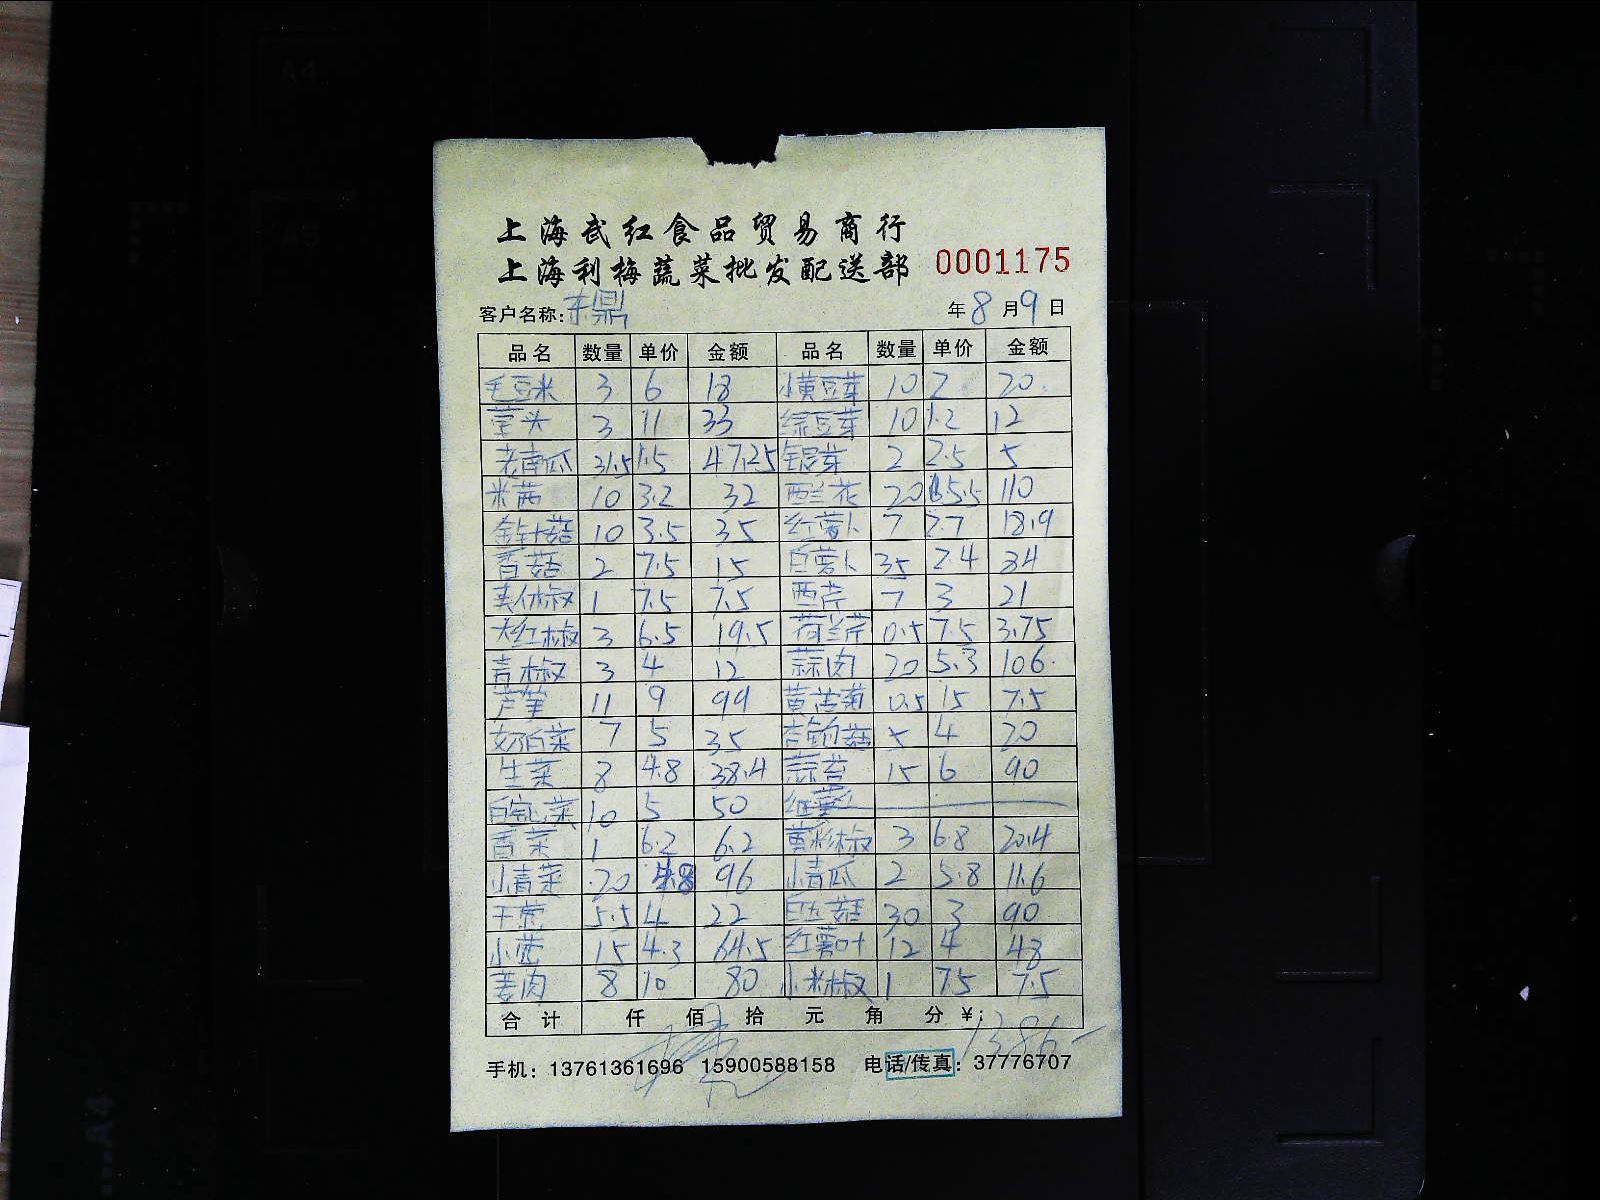 上海武红食品贸易商行
上海利梅蔬菜批发配送部 0001175
客户名称: 鼎 年8月9日
品名 数量 单价 金额 品名 数量 单价 金额
毛豆米 3 6 18 小黄豆芽 10 2 20.
草头 3 11 33 绿豆芽 10 1.2 12
老南瓜 31.5 1.5 47.25 银芽 2 2.5 5
米茜 10 3.2 32 西兰花 20 5.5 110
金针菇 10 3.5 35 红萝卜 7 2.7 18.9
香菇 2 7.5 15 白萝卜 35 2.4 84
美人椒 1 7.5 7.5 西芹 7 3 21
大红椒 3 6.5 19.5 荷兰芹 0.5 7.5 3.75
青椒 3 4 12 蒜肉 20 5.3 106.
芦笋 11 9 99 黄苦菊 0.5 15 7.5
奶白菜 7 5 35 杏鲍菇 5 4 20
生菜 8 4.8 38.4 蒜苔 15 6 90
白菜 10 5 50
香菜 1 6.2 6.2 黄彩椒 3 6.8 20.4
小青菜 20 4.8 96 小青瓜 2 5.8 11.6
5.5 4 22 白玉菇 30 3 90
小葱 15 4.3 64.5 红薯叶 12 4 48
姜肉 8 10 80 小米椒 1 7.5 7.5
合计 仟 佰 拾 元 角 分 ¥: 1386-
手机: 13761361696 15900588158 电话/传真: 37776707